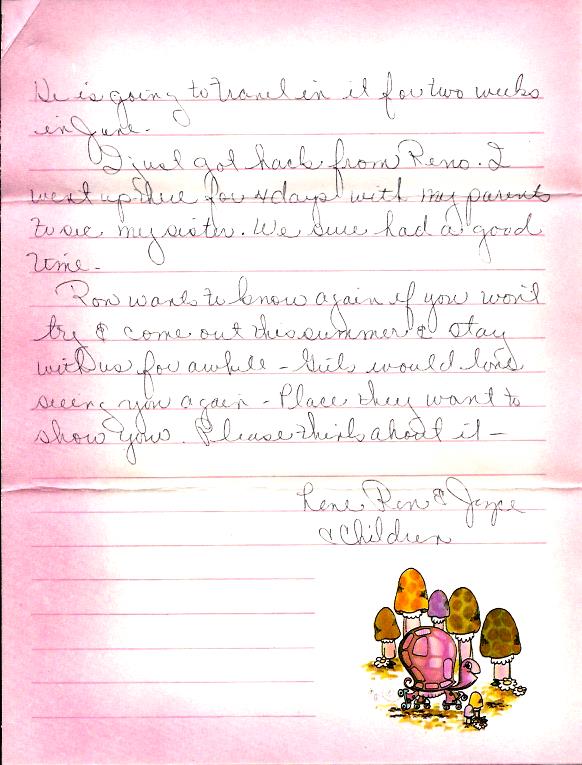 He is going to travel in it for two weeks
in June.
I just got back from Reno. I
went up there for 4 days with my parents
to see my sister. We sure had a good
time.
Ron wants to know again if you won't
try & come out this summer & stay
with us for awhile - Girls would love
seeing you again - Place they want to
show you. Please think about it -
Love Ron & Joyce
& Children